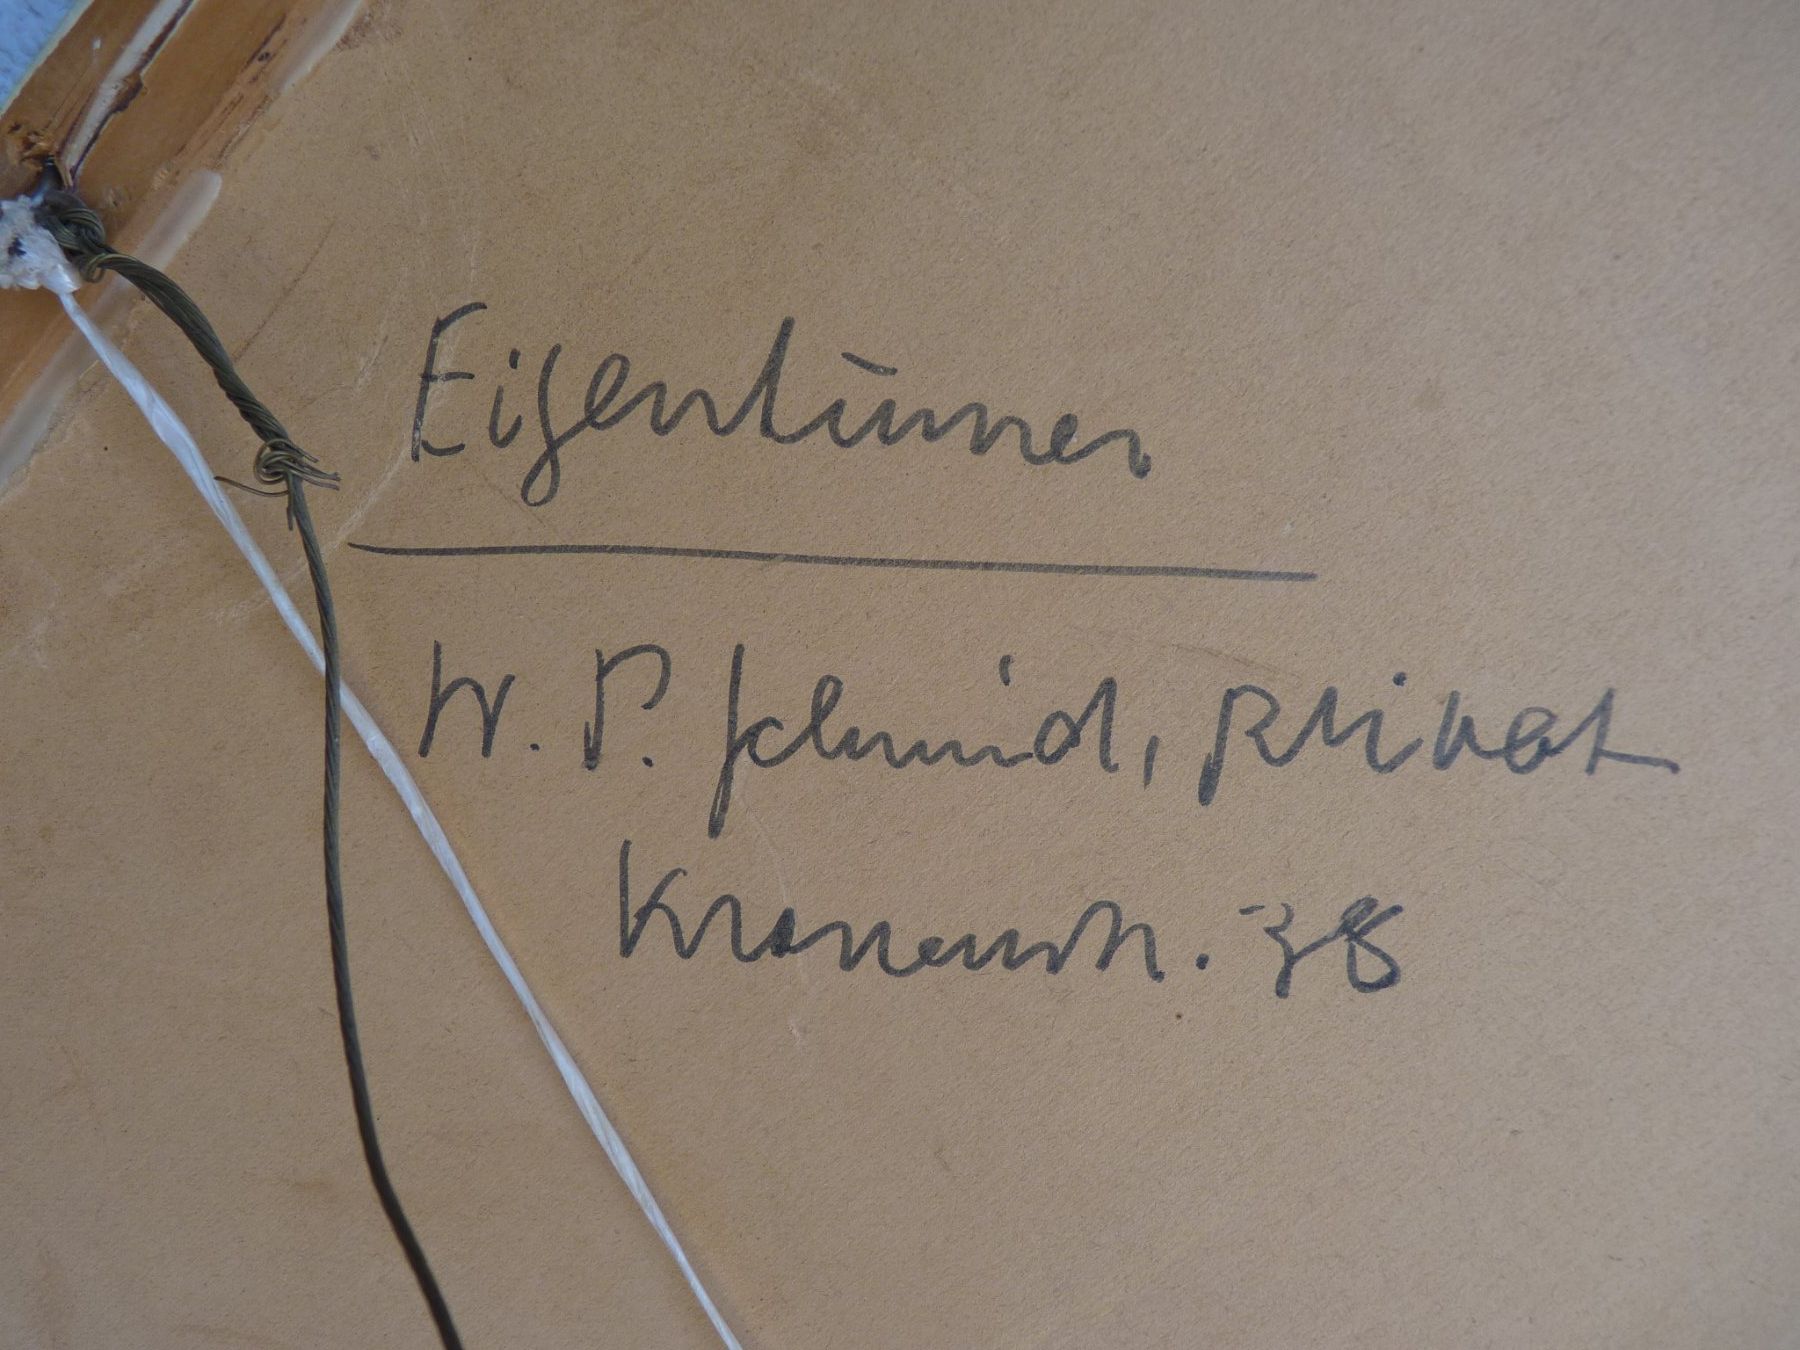 Eigentümer
W. P. Schmid, privat
Kronenstr. 38